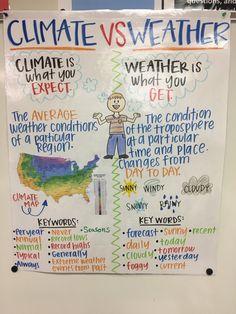 questions, and
CLIMATE VS WEATHER
CLIMATE IS
what you
EXPECT.
WEATHER IS
what you
GET.
The AVERAGE
weather conditions
of a particular
REGION.
The condition
of the troposphere
at a particular
time and place.
Changes from
DAY TO DAY.
CLIMATE
MAP
SUNNY WINDY
CLOUDY
SNOWY RAINY
KEY WORDS:
• Per year
• Annual
• Normal
• Typical
• Always
• Never
• Record lows
• Record highs
• Generally
• Extreme weather
events from past
• Seasons
KEY WORDS:
• forecast
• daily
• cloudy
• foggy
• sunny
• today
• tomorrow
• yesterday
• current
• recent